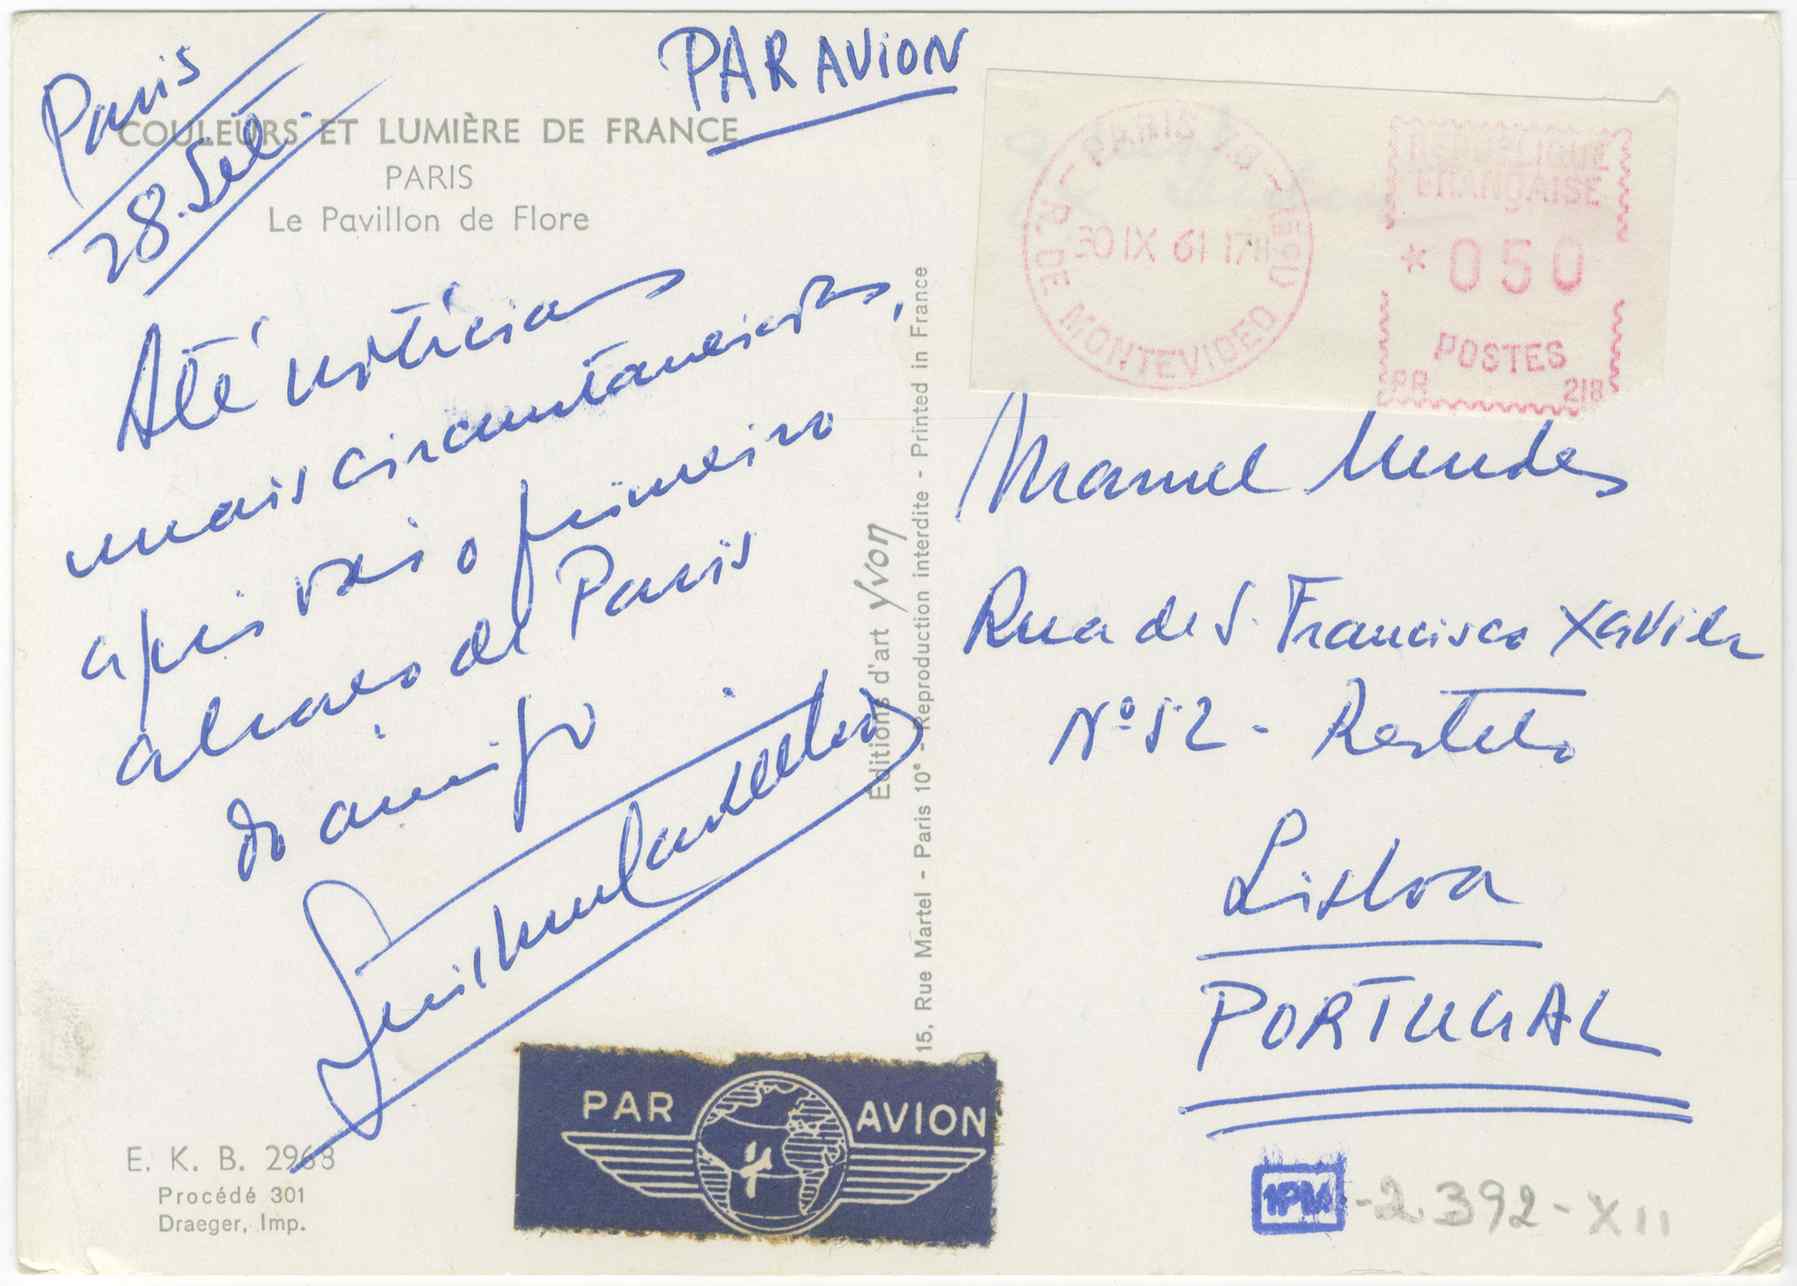 Paris
28. Set.
PAR AVION
COULEURS ET LUMIÈRE DE FRANCE
PARIS
Le Pavillon de Flore
Até notícias
mais circunstanciadas,
aqui vai o primeiro
abraço de Paris
do amigo
PARIS
R. DE MONTEVIDEO
30 IX 61 17H
REPUBLIQUE
FRANÇAISE
*050
POSTES
Manuel Mendes
Rua de S. Francisco Xavier
Nº 52 - Restelo
Lisboa
PORTUGAL
Editions d'art Yvon
15, Rue Martel - Paris 10e - Reproduction interdite - Printed in France
E. K. B. 2968
Procédé 301
Draeger, Imp.
PAR AVION
1PM -2.392-XII